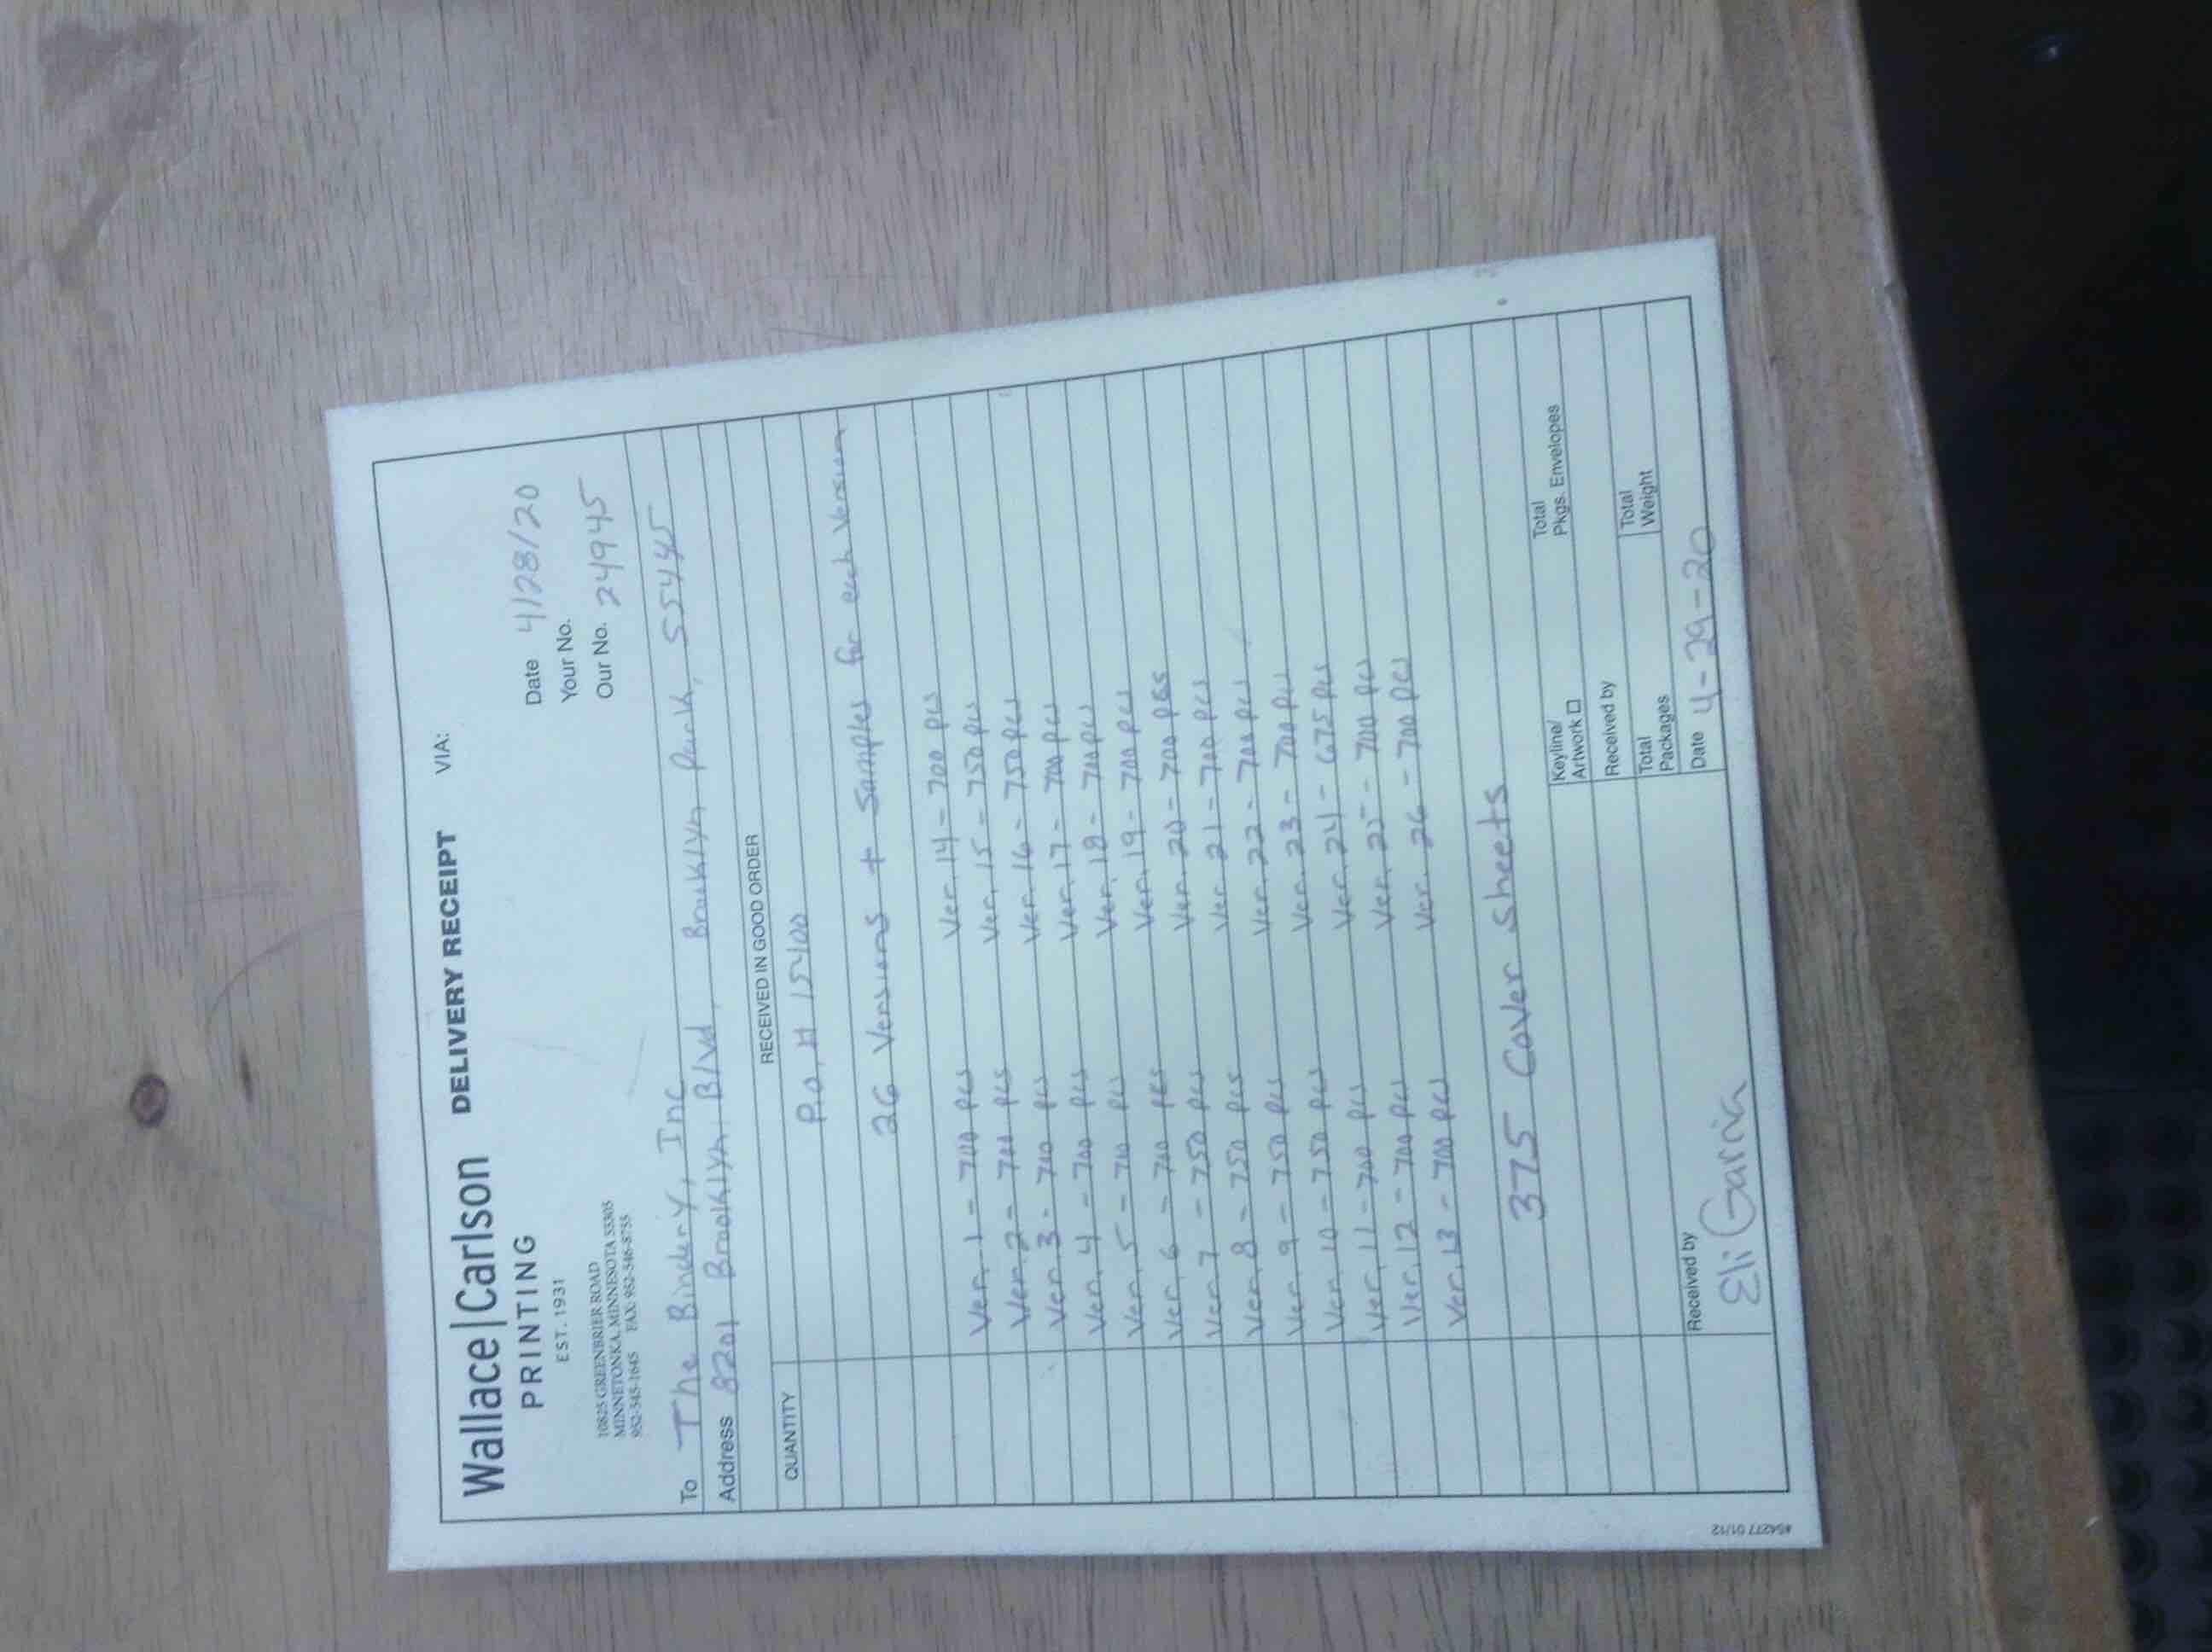 Wallace|Carlson DELIVERY RECEIPT VIA:
PRINTING
EST. 1931
Date 4/28/20
Your No.
Our No. 24945
10825 GREENBRIER ROAD
MINNETONKA, MINNESOTA 55305
952-545-1645 FAX: 952-546-8755
To The Bindery, Inc
Address 8201 Brooklyn Blvd, Brooklyn Park, 55445
QUANTITY RECEIVED IN GOOD ORDER
P.O. # 15400
26 Versions + Samples for each Version
Ver. 1 - 700 pcs Ver. 14 - 700 pcs
Ver. 2 - 700 pcs Ver. 15 - 750 pcs
Ver. 3 - 700 pcs Ver. 16 - 750 pcs
Ver. 4 - 700 pcs Ver. 17 - 700 pcs
Ver. 5 - 700 pcs Ver. 18 - 700 pcs
Ver. 6 - 700 pcs Ver. 19 - 700 pcs
Ver. 7 - 750 pcs Ver. 20 - 700 pcs
Ver. 8 - 750 pcs Ver. 21 - 700 pcs
Ver. 9 - 750 pcs Ver. 22 - 700 pcs
Ver. 10 - 750 pcs Ver. 23 - 700 pcs
Ver. 11 - 700 pcs Ver. 24 - 675 pcs
Ver. 12 - 700 pcs Ver. 25 - 700 pcs
Ver. 13 - 700 pcs Ver. 26 - 700 pcs
375 Cover Sheets
Keyline/ Artwork Total Pkgs. Envelopes
Received by
Total Packages Total Weight
Received by Eli Garcia Date 4-29-20